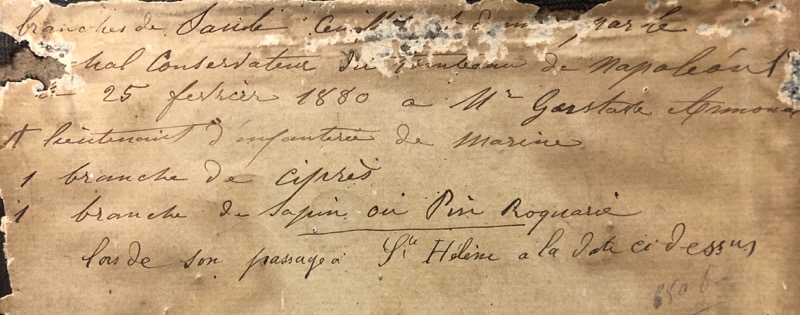 branches de Saule Cueill
chal Conservateur du tombeau de Napoléon 1
25 fevrier 1880 a Mr Gerstate Armou
lieutenant d'infanterie de Marine
1 branche de ciprès
1 branche de Sapin ou Pin Roquarié
lors de son passage a Ste Hélène a la date ci dessus